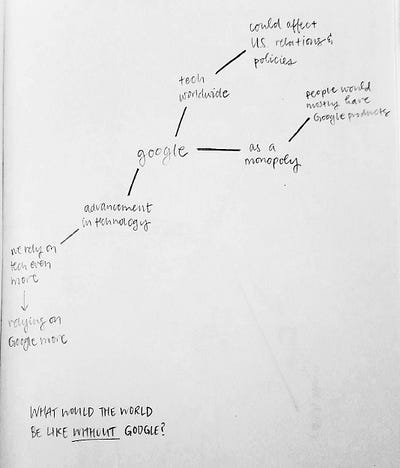 could affect
US relations &
policies
tech
worldwide
people would
mostly have
Google products
google
as a
monopoly
advancement
in technology
we rely on
tech even
more
relying on
Google more
WHAT WOULD THE WORLD
BE LIKE WITHOUT GOOGLE?